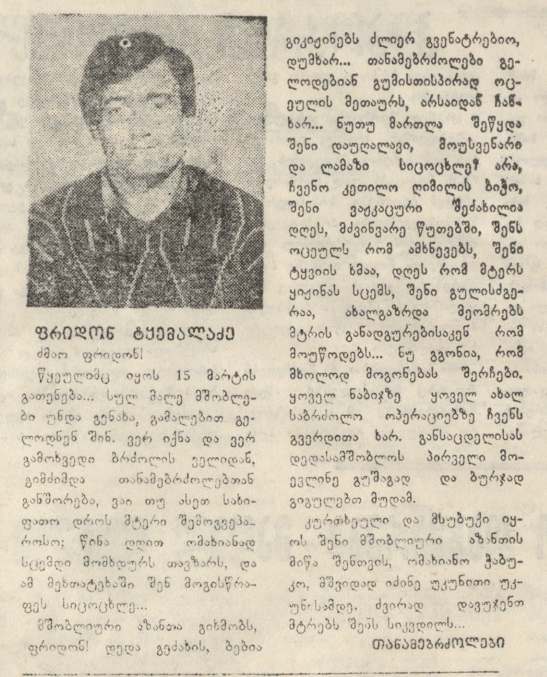 ფრიდონ ტყემალაძე
ძმაო ფრიდონ!
წყეულიმც იყოს 15 მარტის
გათენება... სულ მალე მშობლე-
ბი უნდა გენახა, გამალებით გე-
ლოდნენ შინ. ვერ იქნა და ვერ
გამოხვედი ბრძოლის ველიდან,
გიმძიმდა თანამებრძოლებთან
განშორება, ვაი თუ ასეთ სახი-
ფათო დროს მტერი შემოგვეპა-
როსო; წინა დღით ომახიანად
სცემდი მომხდურს თავზარს, და
ამ შეხლაში შენ მოგისწრა-
ფეს სიცოცხლე...
მშობლიური აზანთა გიხმობს,
ფრიდონ! დედა გეძახის, ბებია
გიკიჟინებს ძლიერ გვენატრებიო,
დუმხარ... თანამებრძოლები გე-
ლოდებიან გუმისთისპირად ოც-
ეულის მეთაურს, არსაიდან ჩან-
ხარ... ნუთუ მართლა შეწყდა
შენი დაუღალავი, მოუსვენარი
და ლამაზი სიცოცხლე? არა,
ჩვენო კეთილო ღიმილის ბიჭო,
შენი ვაჟკაცური შეძახილია
დღეს, მძვინვარე წუთებში, შენს
ოცეულს რომ ამხნევებს, შენი
ტყვიის ხმაა, დღეს რომ მტერს
ყიჟინას სცემს, შენი გულისძგე-
რაა, ახალგაზრდა მეომრებს
მტრის განადგურებისაკენ რომ
მოუწოდებს... ნუ გგონია, რომ
მხოლოდ მოგონებას შერჩები.
ყოველ ნაბიჯზე ყოველ ახალ
საბრძოლო ოპერაციებზე ჩვენს
გვერდითა ხარ. განსაცდელისას
დედასამშობლოს პირველი მო-
ევლინე გუშაგად და ბურჯად
გიგულებთ მუდამ.
კურთხეული და მსუბუქი იყ-
ოს შენი მშობლიური აზანთის
მიწა შენთვის, ომახიანო ჭაბუ-
კო, მშვიდად იძინე უკუნითი უკ-
უნისამდე, ძვირად დავუჯენთ
მტრებს შენს სიკვდილს...
თანამებრძოლები